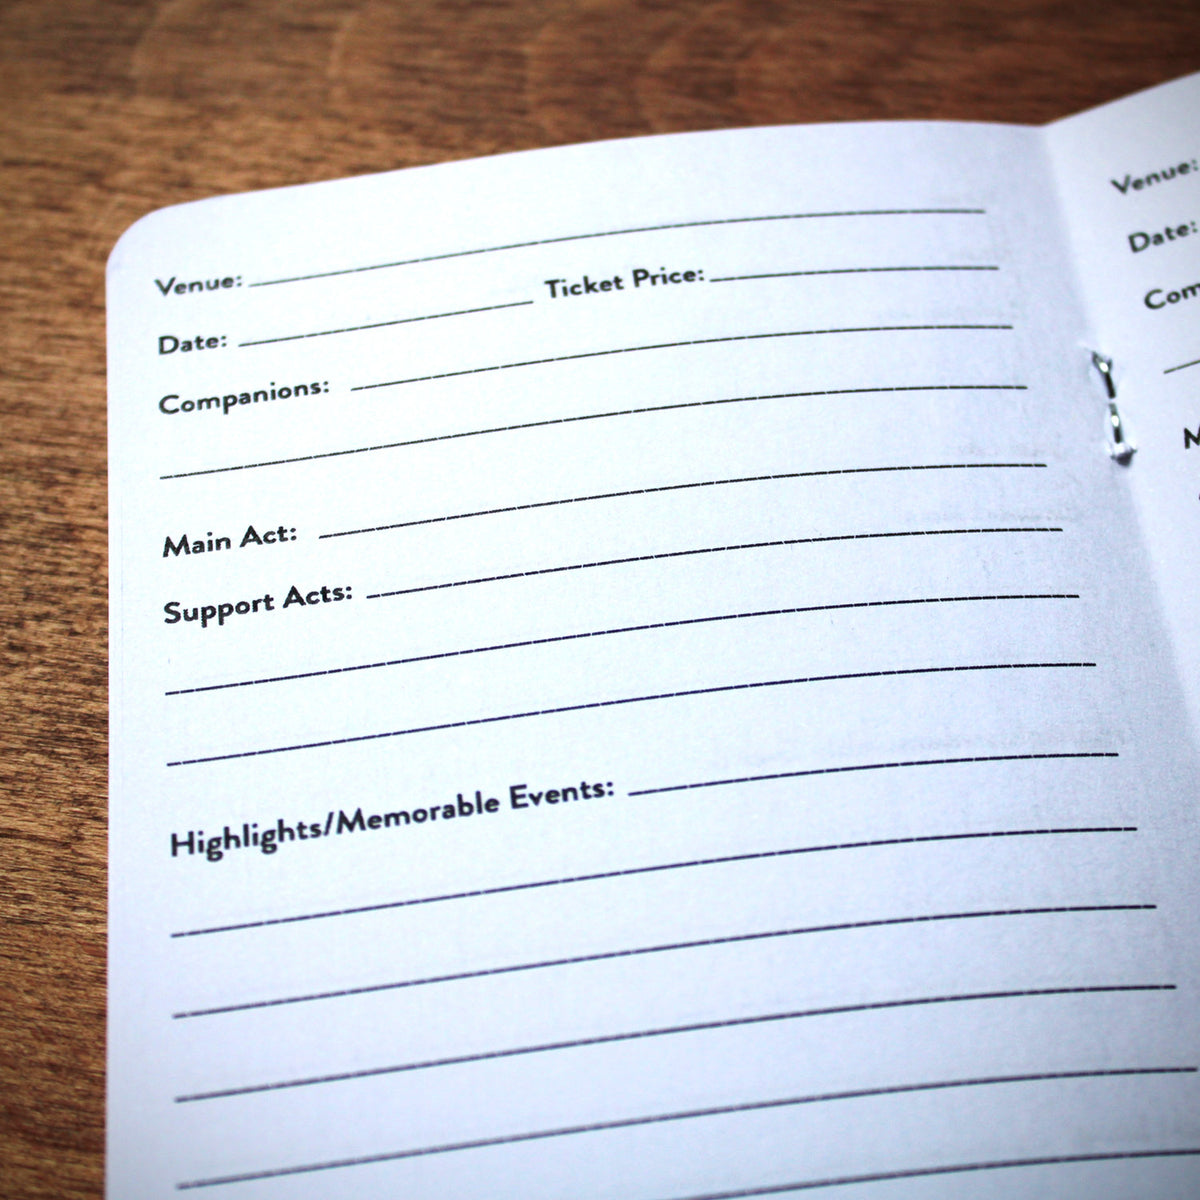 Venue:
Date: Ticket Price:
Companions:
Main Act:
Support Acts:
Highlights/Memorable Events:
Venue:
Date:
Com
M